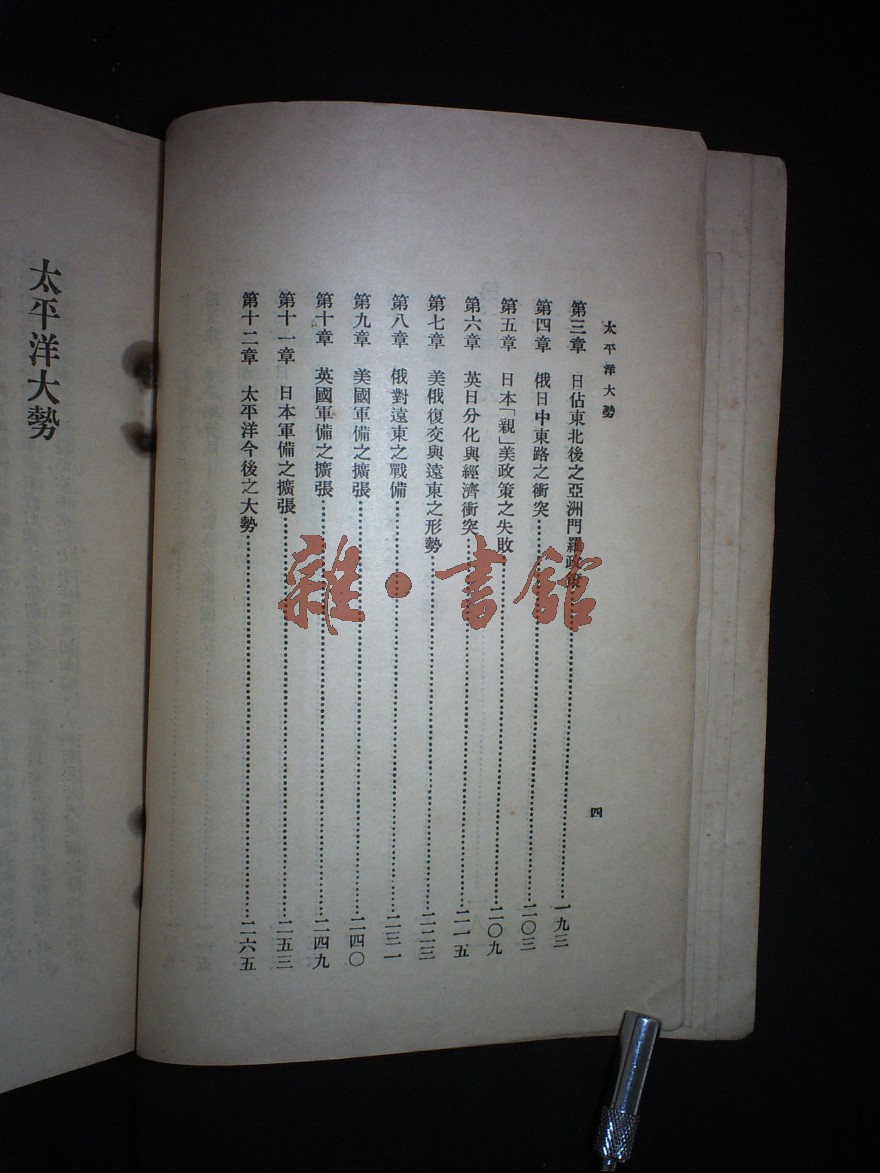 太平洋大勢
第三章　日佔東北後之亞洲門羅政策………一九三
第四章　俄日中東路之衝突………二〇三
第五章　日本「親」美政策之失敗………二〇九
第六章　英日分化與經濟衝突………二一五
第七章　美俄復交與遠東之形勢………二二三
第八章　俄對遠東之戰備………二三一
第九章　美國軍備之擴張………二四〇
第十章　英國軍備之擴張………二四九
第十一章　日本軍備之擴張………二五三
第十二章　太平洋今後之大勢………二六五
四
太平洋大勢
雜·書館